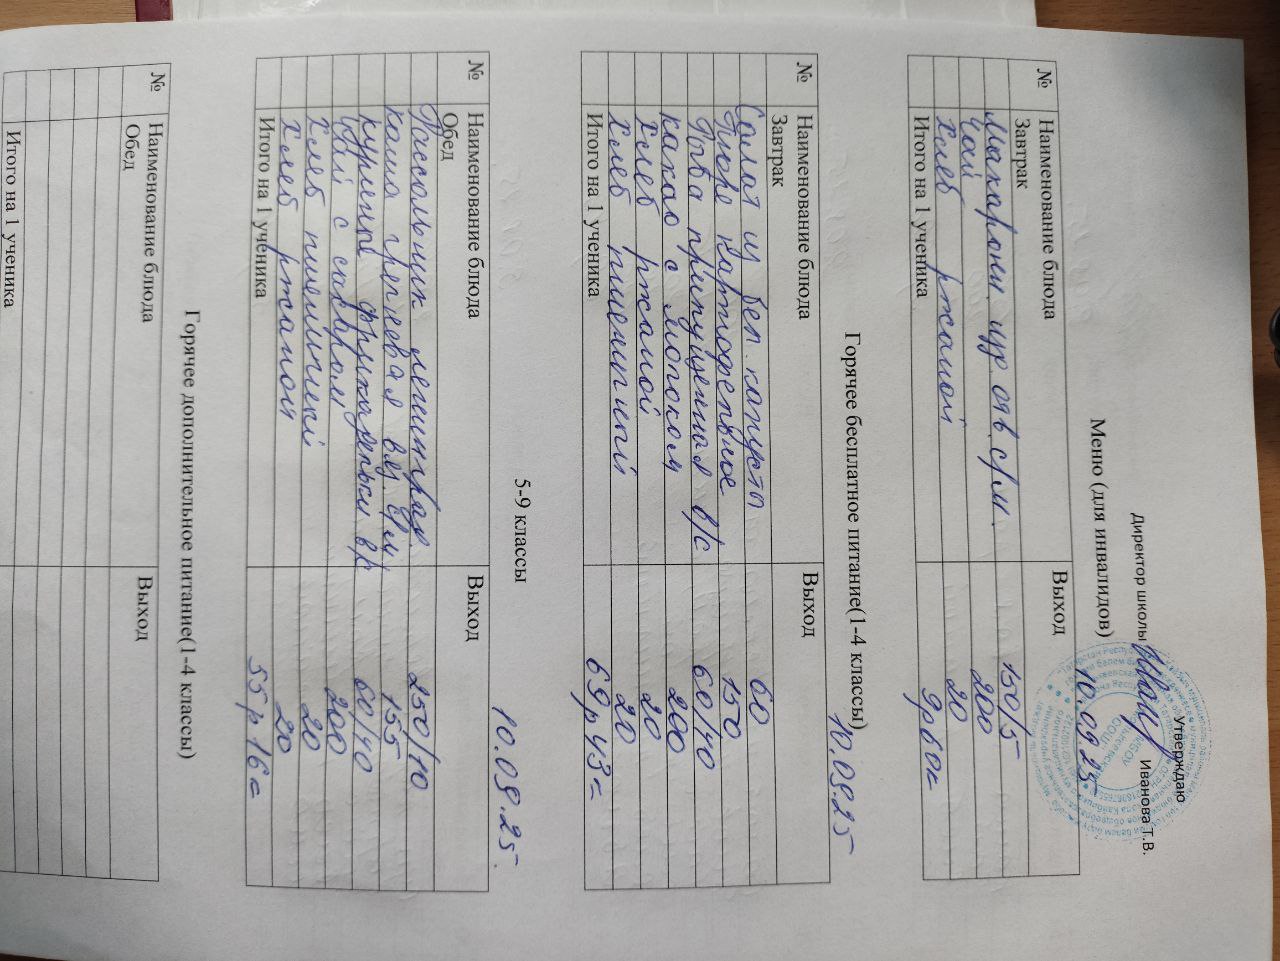 Утверждаю
Директор школы Иванова Т.В.
Меню (для инвалидов) 10.09.25
№ Наименование блюда Выход
Завтрак
Макароны изд. отв. с/м. 150/5
Чай 200
Хлеб ржаной 20
Итого на 1 ученика 9р60к
Горячее бесплатное питание(1-4 классы) 10.09.25
№ Наименование блюда Выход
Завтрак
Салат из бел. капусты 60
Пюре картофельное 150
Рыба припущенная в/с 60/40
какао с молоком 200
Хлеб ржаной 20
Хлеб пшеничный 20
Итого на 1 ученика 69р43=
5-9 классы 10.09.25.
№ Наименование блюда Выход
Обед
Рассольник ленинград. 250/10
каша гречневая вяз. с/м 155
куриные фрикадельки в/с 60/40
Чай с сахаром 200
Хлеб пшеничный 20
Хлеб ржаной 20
Итого на 1 ученика 55р16=
Горячее дополнительное питание(1-4 классы)
№ Наименование блюда Выход
Обед
Итого на 1 ученика